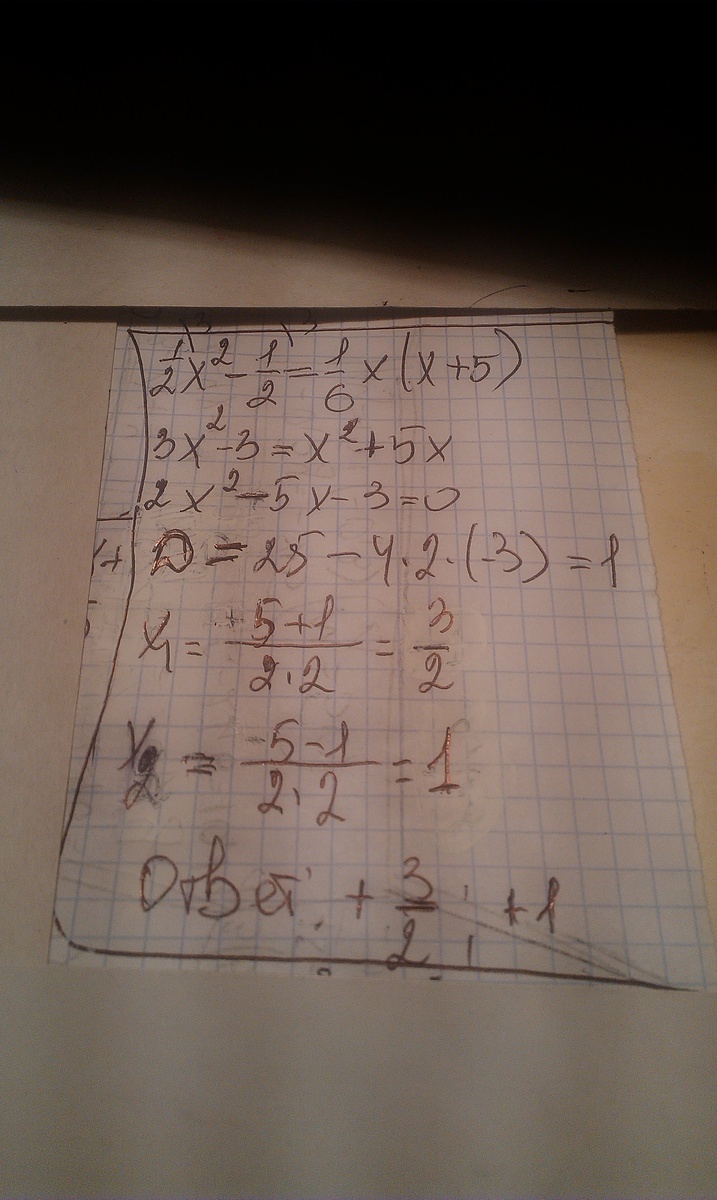 \3 \3
1/2 x² - 1/2 = 1/6 x (x+5)
3x² - 3 = x² + 5x
2x² - 5x - 3 = 0
D = 25 - 4·2·(-3) = 1
x₁ = +5+1 / 2·2 = 3/2
x₂ = -5-1 / 2·2 = 1
Ответ: + 3/2 ; +1